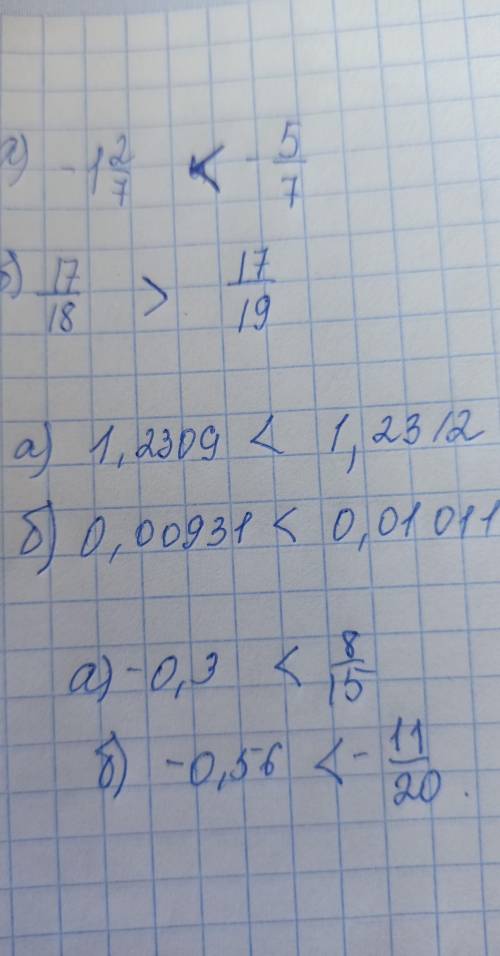 а) -1 2/7 < - 5/7
б) 17/18 > 17/19
а) 1,2309 < 1,2312
б) 0,00931 < 0,01011
а) -0,3 < 8/15
б) -0,56 < - 11/20.